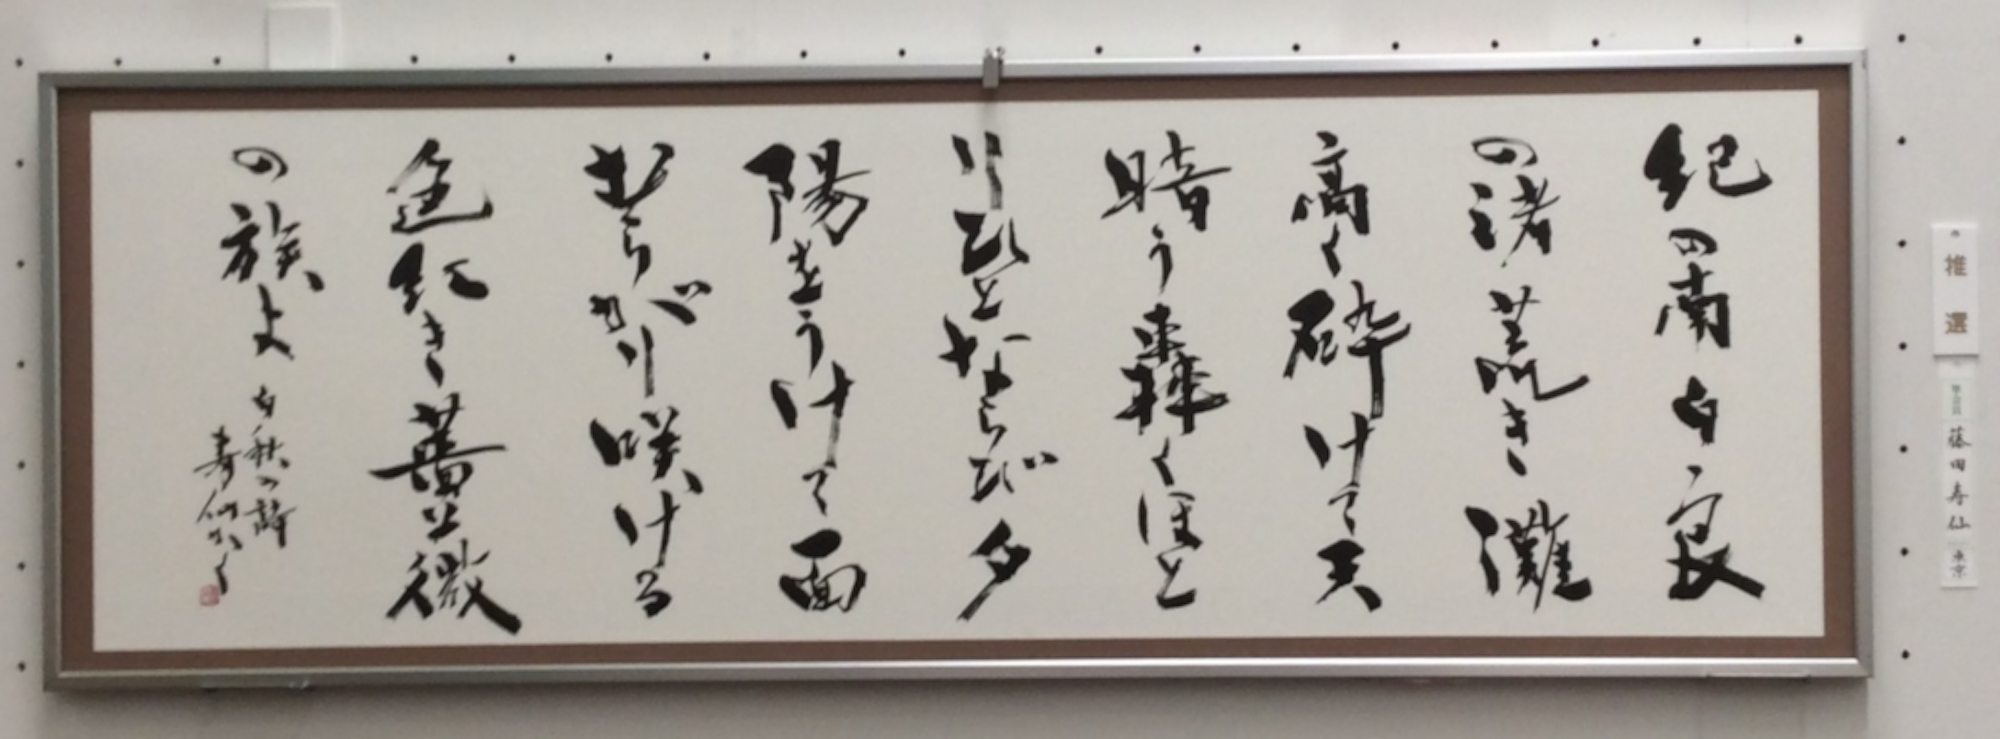 紀の南白良
の渚荒き灘
高く砕けて天
暗う轟くほと
りひとならび夕
陽をうけて面
むらがり咲ける
色紅き薔薇
の族よ
白秋の詩
寿仙かく
推選
藤田寿仙
東京